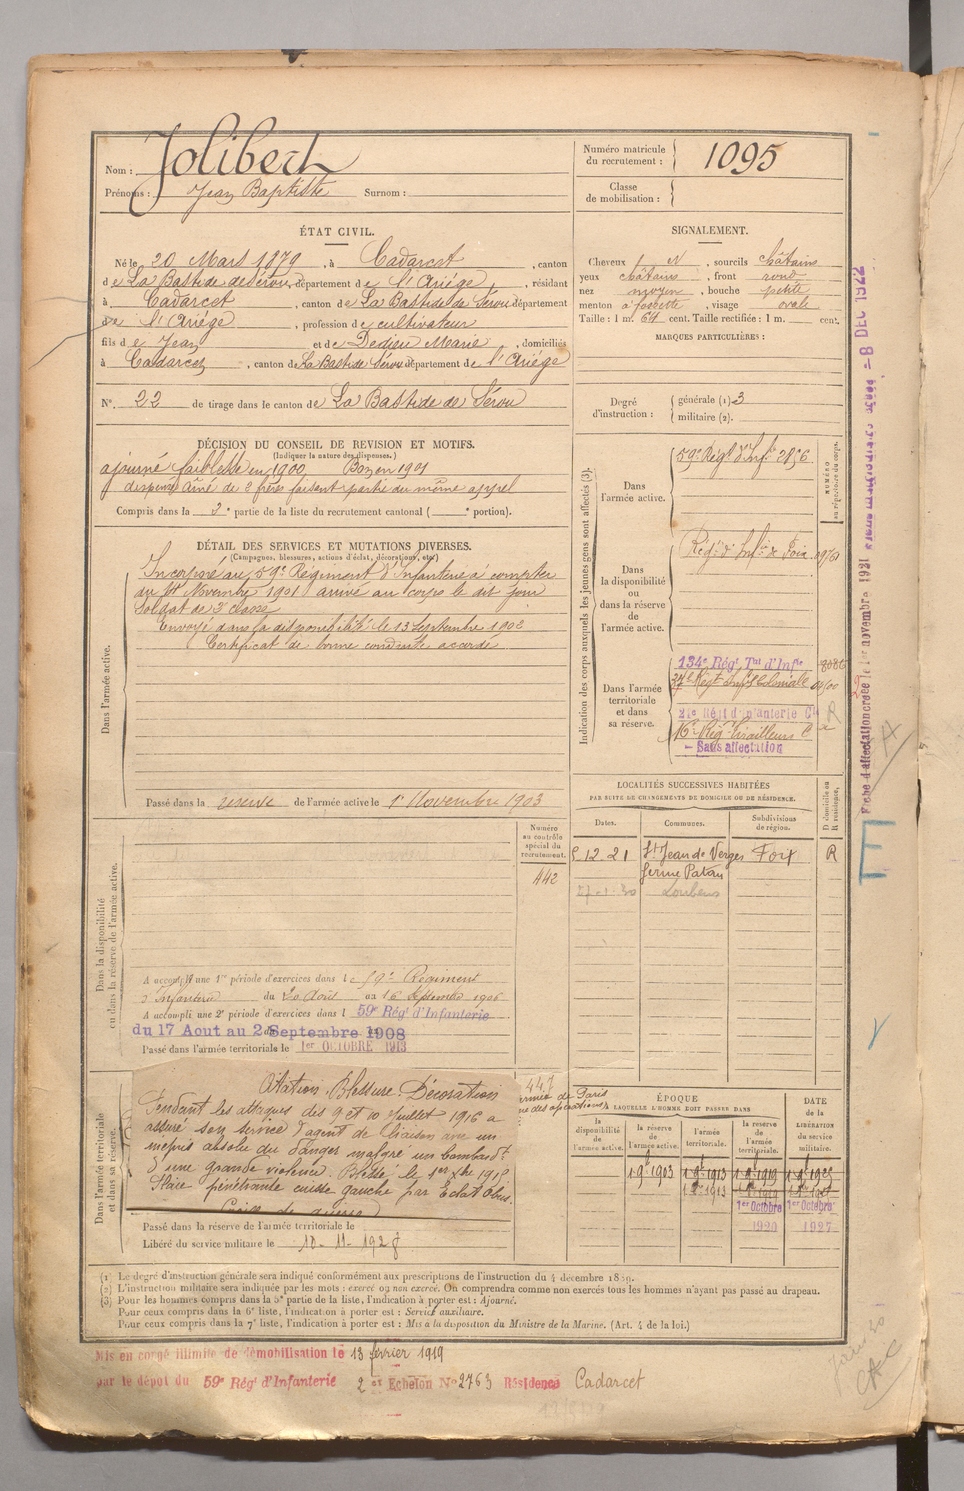 Nom : Jolibert
Prénoms : Jean Baptiste Surnom :
Numéro matricule du recrutement : 1095
Classe de mobilisation :
ÉTAT CIVIL.
Né le 20 Mars 1879, à Cadarcet, canton
de La Bastide de Sérou, département de l'Ariége, résidant
à Cadarcet, canton de La Bastide de Sérou département
de l'Ariége, profession de cultivateur
fils de Jean et de Dedieu Marie, domiciliés
à Cadarcet, canton de La Bastide Sérou département de l'Ariége
N° 22 de tirage dans le canton de La Bastide de Sérou
SIGNALEMENT.
Cheveux et, sourcils châtains
yeux châtains, front rond
nez moyen, bouche petite
menton à fossette, visage ovale
Taille : 1 m. 64 cent. Taille rectifiée : 1 m. cent.
MARQUES PARTICULIÈRES :
Degré d'instruction : générale (1) 3
militaire (2).
DÉCISION DU CONSEIL DE REVISION ET MOTIFS.
(Indiquer la nature des dispenses.)
ajourné faiblesse en 1900 Bon en 1901
dispensé Aîné de 2 frères faisant partie du même appel
Compris dans la 2e partie de la liste du recrutement cantonal ( e portion).
DÉTAIL DES SERVICES ET MUTATIONS DIVERSES.
(Campagnes, blessures, actions d'éclat, décorations, etc.)
Dans l'armée active.
Incorporé au 59e Régiment d'Infanterie à compter
du 14 Novembre 1901 arrivé au corps le dit jour
Soldat de 2e classe
Envoyé dans la disponibilité le 13 Septembre 1902
Certificat de bonne conduite accordé
Passé dans la réserve de l'armée active le 1er Novembre 1903
Indication des corps auxquels les jeunes gens sont affectés (3).
NUMÉRO au répertoire du corps.
Dans l'armée active.
59e Régt d'Inf. 2856
Dans la disponibilité ou dans la réserve de l'armée active.
Régt d'Infie de Foix
Dans l'armée territoriale et dans sa réserve.
134e Régt Tal d'Infie
Régt Infie Coloniale
21e Régt d'Infanterie Cle
16e Rég. Tirailleurs C
- Sans affectation
LOCALITÉS SUCCESSIVES HABITÉES
PAR SUITE DE CHANGEMENTS DE DOMICILE OU DE RÉSIDENCE.
Dates. Communes. Subdivisions de région. D domicile ou R résidence.
12.21 St Jean de Verges Foix R
ferme Patau
27.1.30 Loubens
Dans la disponibilité ou dans la réserve de l'armée active.
Numéro au contrôle spécial du recrutement.
442
A accompli une 1re période d'exercices dans le 59e Régiment
d'Infanterie du 20 Avril au 16 Septembre 1906
A accompli une 2e période d'exercices dans l 59e Rég. d'Infanterie
du 17 Aout au 2 Septembre 1908
Passé dans l'armée territoriale le 1er OCTOBRE 1913
Dans l'armée territoriale et dans sa réserve.
Citation. Blessure. Décoration
Pendant les attaques des 9 et 10 Juillet 1916 a
assuré son service d'agent de liaison avec un
mépris absolu du danger malgré un bombardt
d'une grande violence. Blessé le 1er Xbre 1915
Plaie pénétrante cuisse gauche par Eclat Obus
Croix de guerre
Passé dans la réserve de l'armée territoriale le
Libéré du service militaire le 10-11-1928
447
ÉPOQUE
A LAQUELLE L'HOMME DOIT PASSER DANS
la disponibilité de l'armée active. la réserve de l'armée active. l'armée territoriale. la réserve de l'armée territoriale. DATE de la LIBÉRATION du service militaire.
1903 1913 1919 1925
1er Octobre 1er Octobre
1920 1927
(1) Le degré d'instruction générale sera indiqué conformément aux prescriptions de l'instruction du 4 décembre 1889.
(2) L'instruction militaire sera indiquée par les mots : exercé ou non exercé. On comprendra comme non exercés tous les hommes n'ayant pas passé au drapeau.
(3) Pour les hommes compris dans la 5e partie de la liste, l'indication à porter est : Ajourné.
Pour ceux compris dans la 6e liste, l'indication à porter est : Service auxiliaire.
Pour ceux compris dans la 7e liste, l'indication à porter est : Mis à la disposition du Ministre de la Marine. (Art. 4 de la loi.)
Mis en congé illimité de démobilisation le 13 février 1919
par le dépôt du 59e Régt d'Infanterie 2e Echelon N° 2763 Résidence Cadarcet
8 DEC 1922